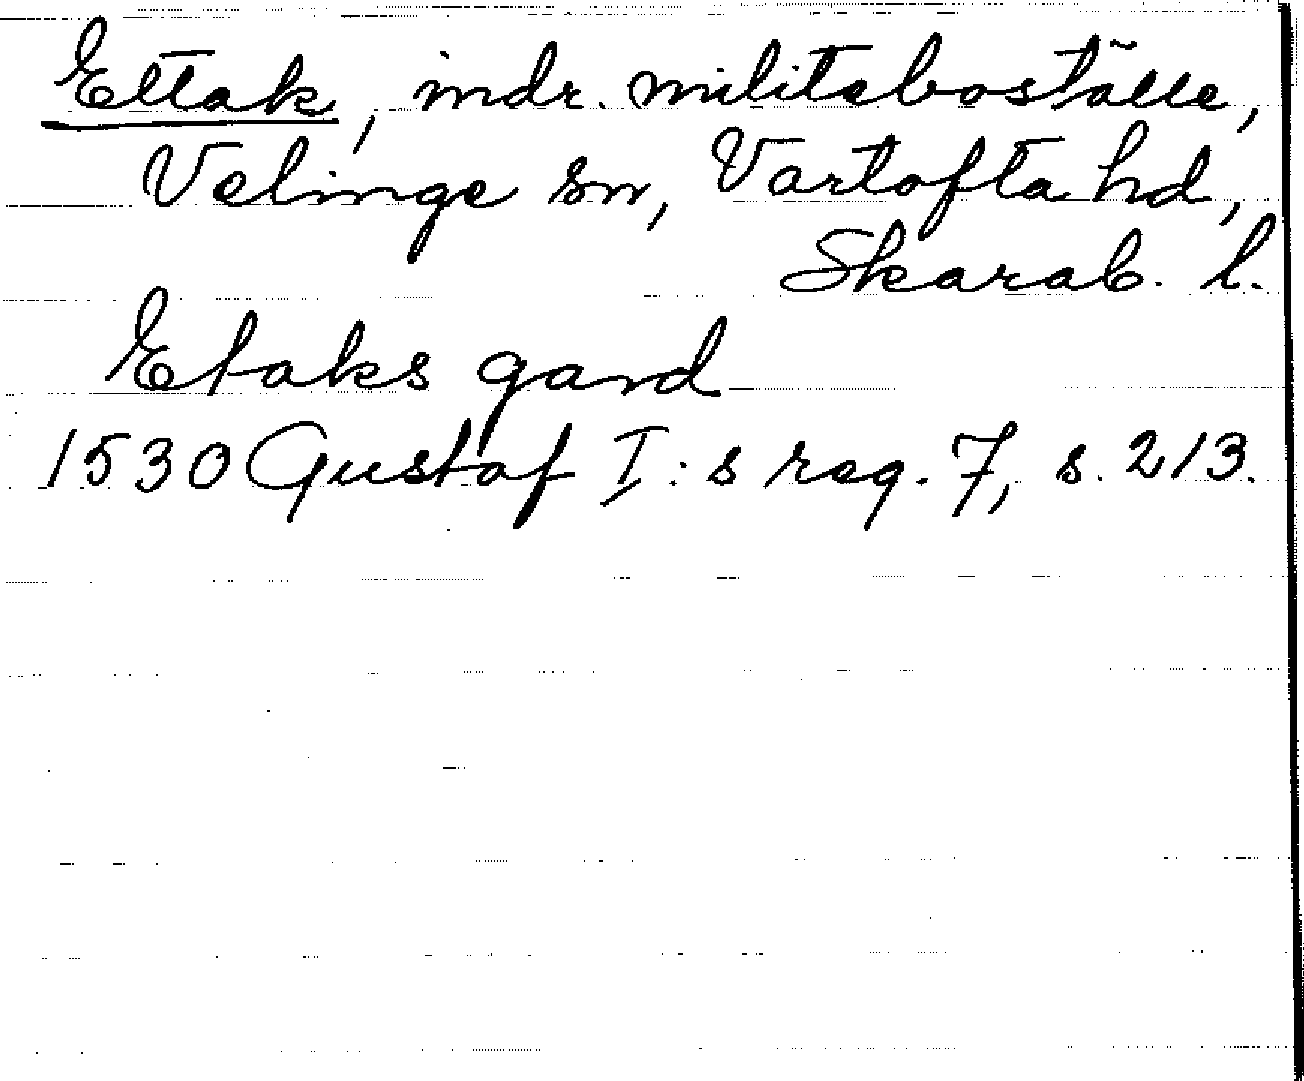 Ettak, indr. militeboställe,
Velinge sn, Vartofta hd,
Skarab. l.
Etaks gard
1530 Gustaf I:s reg. 7, s. 213.